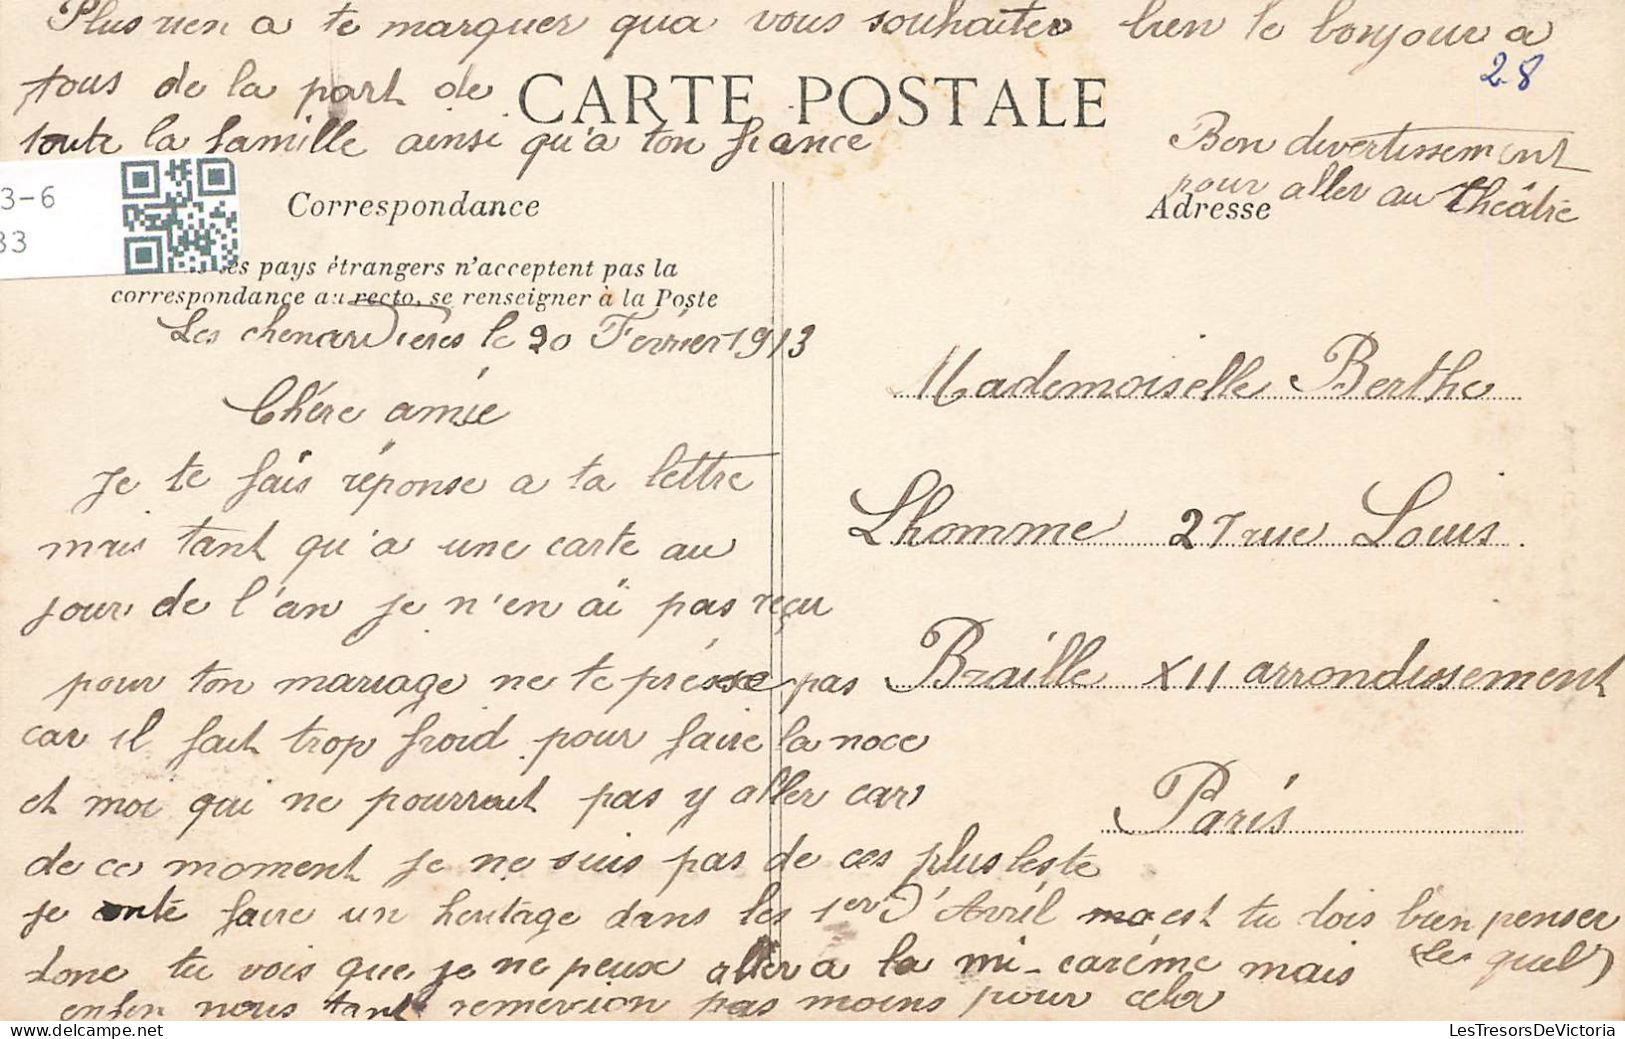 Plus rien a te marquer qua vous souhaiter bien le bonjour a
tous de la part de
toute la famille ainsi qu'a ton fiance
28
CARTE POSTALE
Bon divertissement
pour aller au théâtre
3-6
33
Correspondance
Adresse
pays étrangers n'acceptent pas la
correspondance au recto, se renseigner à la Poste
Les chenardieres le 20 Fevrier 1913
Chère amie
Je te fais réponse a ta lettre
mais tant qu'a une carte au
jour de l'an je n'en ai pas reçu
pour ton mariage ne te présse pas
car il fait trop froid pour faire la noce
et moi qui ne pourrait pas y aller car
de ce moment je ne suis pas de ces plus leste
je faire un heritage dans les 1er d'Avril est tu dois bien penser
le quel)
donc tu vois que je ne peux aller a la mi-carême mais
enfin nous pas moins pour cela
Mademoiselle Berthe
Lhomme 27 rue Louis
Braille XII arrondissement
Paris
LesTresorsDeVictoria
delcampe.net